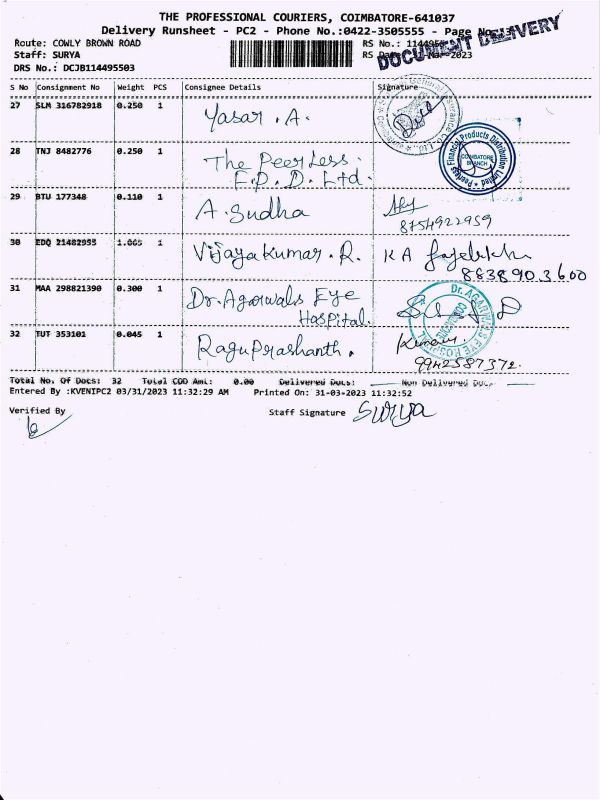 THE PROFESSIONAL COURIERS, COIMBATORE-641037
Delivery Runsheet - PC2 - Phone No.:0422-3505555 - Page
DOCUMENT DELIVERY
Route: COWLY BROWN ROAD
RS No.:
Staff: SURYA
RS -2023
DRS No.: DCJB114495503
S No Consignment No Weight PCS Consignee Details Signature
27 SLM 316782918 0.250 1 Yasar . A .
28 TNJ 8482776 0.250 1 The PeerLess
E.P.D. Ltd.
Peerless Financial Products Distribution Limited
COIMBATORE
BRANCH
29 BTU 177348 0.110 1 A. Sudha
8754922959
30 EDQ 21482955 1.065 1 Vijayakumar . R. K A
8838903600
31 MAA 298821390 0.300 1 Dr. Agarwals Eye
Hospital.
Dr. AGARWAL'S EYE HOSPITAL
32 TUT 353101 0.045 1 RaguPrashanth . Kumar
9942587372.
Total No. Of Docs: 32 Total COD Amt: 0.00 Delivered Docs: Non Delivered Docs
Entered By :KVENIPC2 03/31/2023 11:32:29 AM Printed On: 31-03-2023 11:32:52
Verified By Staff Signature Surya